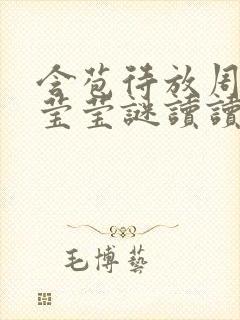 含苞待放周
莹莹謎讀讀
毛博藝